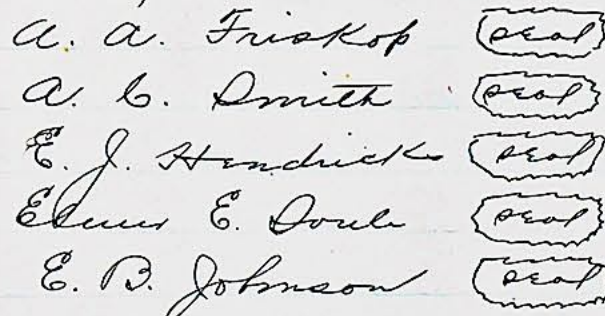 A. A. Friskop seal
A. C. Smith seal
E. J. Hendricks seal
Elmer E. seal
E. B. Johnson seal